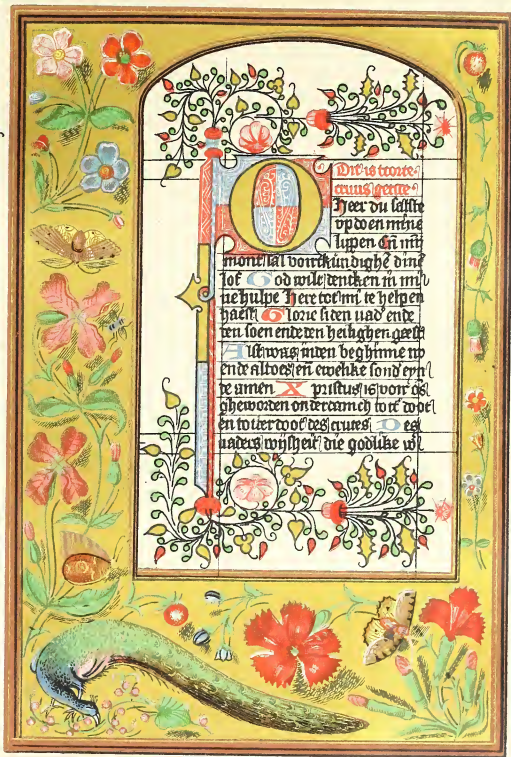 Dit is tcorte
cruus getide
O Heer du sellste
op doen mine
lippen En mijn
mont sal voirtkundighē dine
lof God wilt dencken in mi
ne hulpe Here tot mi te helpen
haest Glorie si den vad ende
den soen ende den heilighen geest
Alst was inden beghinne nv
ende altoes eñ ewelike sond eyn
de amen Xpristus is voor ōs
gheworden onderdanich tott doot
en totter doot des cruces Des
vaders wijsheit die godlike